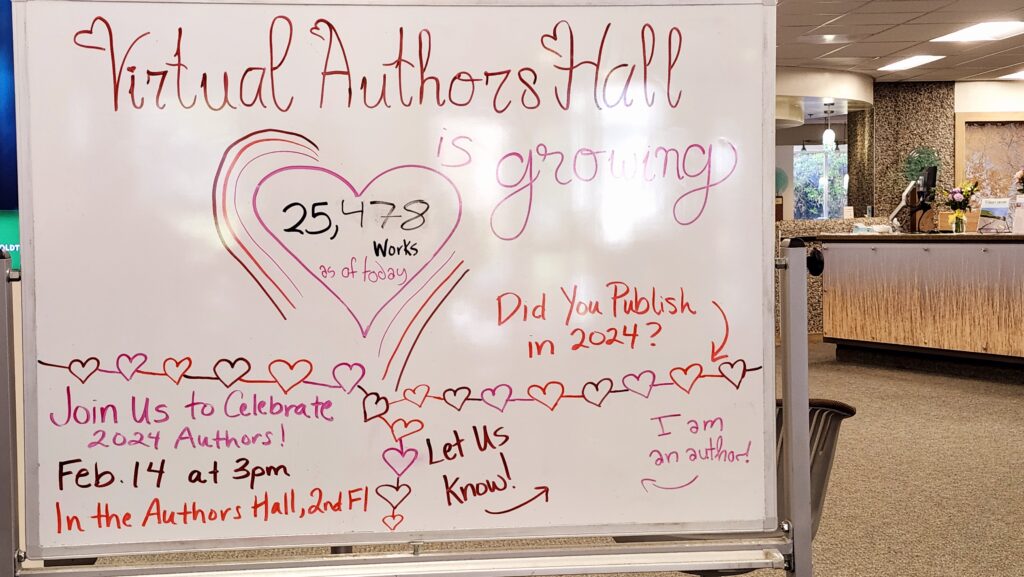 Virtual Authors Hall
is growing
25,478
Works
as of today
Did You Publish
in 2024?
Join Us to Celebrate
2024 Authors!
Feb. 14 at 3pm
In the Authors Hall, 2nd Fl
Let Us
Know!
I am
an author!
OLDT